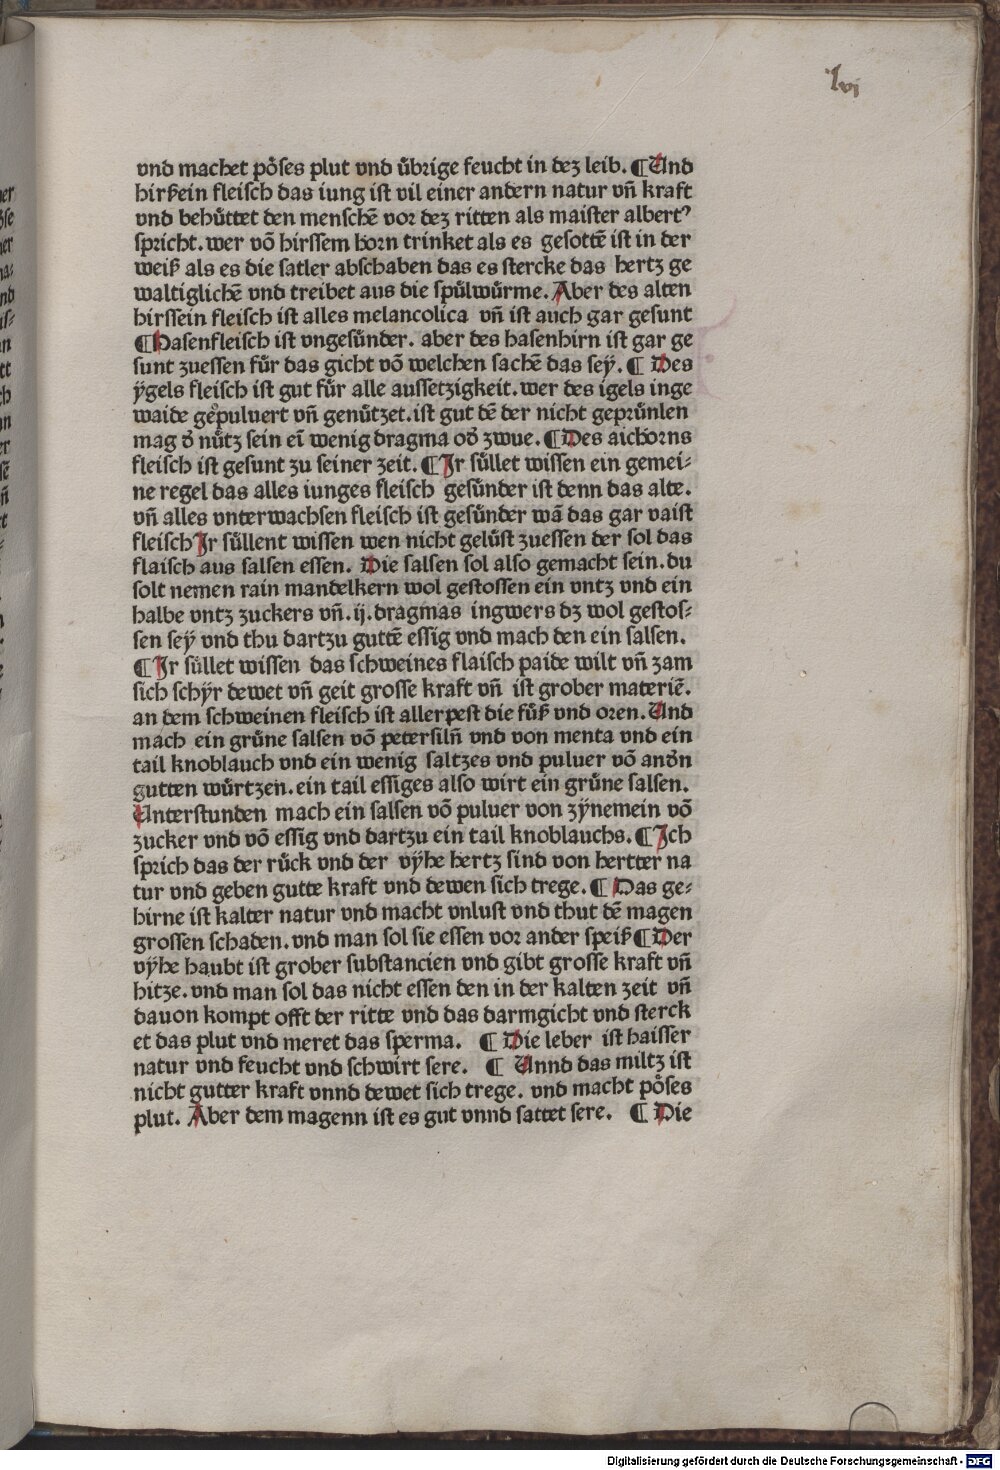 lvi
vnd machet pöses plut vnd übrige feucht in dez leib. ¶ Und
hirßein fleisch das iung ist vil einer andern natur vñ kraft
vnd behüttet den menschē vor dez ritten als maister albertꝰ
spricht. wer vō hirssem horn trinket als es gesottē ist in der
weiß als es die satler abschaben das es stercke das hertz ge
waltiglichē vnd treibet aus die spülwürme. Aber des alten
hirssein fleisch ist alles melancolica vñ ist auch gar gesunt
¶ Hasenfleisch ist vngesünder. aber des hasenhirn ist gar ge
sunt zuessen für das gicht vō welchen sachē das seÿ. ¶ Des
ÿgels fleisch ist gut für alle aussetzigkeit. wer des igels inge
waide gepuluert vñ genützet. ist gut dē der nicht geprünlen
mag d̉ nütz sein eī wenig dragma od̉ zwue. ¶ Des aichorns
fleisch ist gesunt zu seiner zeit. ¶ Ir süllet wissen ein gemei⸗
ne regel das alles iunges fleisch gesünder ist denn das alte.
vñ alles vnterwachsen fleisch ist gesünder wā das gar vaist
fleisch Ir süllent wissen wen nicht gelüst zuessen der sol das
flaisch aus salsen essen. Die salsen sol also gemacht sein. du
solt nemen rain mandelkern wol gestossen ein vntz vnd ein
halbe vntz zuckers vñ .ij. dragmas ingwers dz wol gestos⸗
sen seÿ vnd thu dartzu guttē essig vnd mach den ein salsen.
¶ Ir süllet wissen das schweines flaisch paide wilt vñ zam
sich schÿr dewet vñ geit grosse kraft vñ ist grober materiē.
an dem schweinen fleisch ist allerpest die füß vnd oren. Und
mach ein grüne salsen vō petersilñ vnd von menta vnd ein
tail knoblauch vnd ein wenig saltzes vnd puluer vō and̉n
gutten würtzen. ein tail essiges also wirt ein grüne salsen.
Unterstunden mach ein salsen vō puluer von zÿnemein vō
zucker vnd vō essig vnd dartzu ein tail knoblauchs. ¶ Ich
sprich das der rück vnd der vÿhe hertz sind von hertter na
tur vnd geben gutte kraft vnd dewen sich trege. ¶ Das ge⸗
hirne ist kalter natur vnd macht vnlust vnd thut dē magen
grossen schaden. vnd man sol sie essen vor ander speiß ¶ Der
vÿhe haubt ist grober substancien vnd gibt grosse kraft vñ
hitze. vnd man sol das nicht essen den in der kalten zeit vñ
dauon kompt offt der ritte vnd das darmgicht vnd sterck
et das plut vnd meret das sperma. ¶ Die leber ist haisser
natur vnd feucht vnd schwirt sere. ¶ Unnd das miltz ist
nicht gutter kraft vnnd dewet sich trege. vnd macht pöses
plut. Aber dem magenn ist es gut vnnd sattet sere. ¶ Die
Digitalisierung gefördert durch die Deutsche Forschungsgemeinschaft - DFG